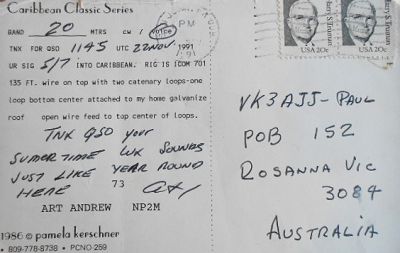 Caribbean Classic Series
BAND 20 MTRS CW / VOICE
TNX FOR QSO 1145 UTC 22 NOV 1991
UR SIG 5/7 INTO CARIBBEAN. RIG IS ICOM 701
135 FT. wire on top with two catenary loops-one
loop bottom center attached to my home galvanize
roof open wire feed to top center of loops.
TNX QSO your
SUMERTIME WX SOUNDS
JUST LIKE YEAR ROUND
HERE 73 Art
ART ANDREW NP2M
1986 © pamela kerschner
• 809-778-8738 • PCNO-259
PM
1991
Harry S. Truman
USA 20c
Harry S. Truman
USA 20c
VK3AJJ-PAUL
POB 152
ROSANNA VIC
3084
AUSTRALIA